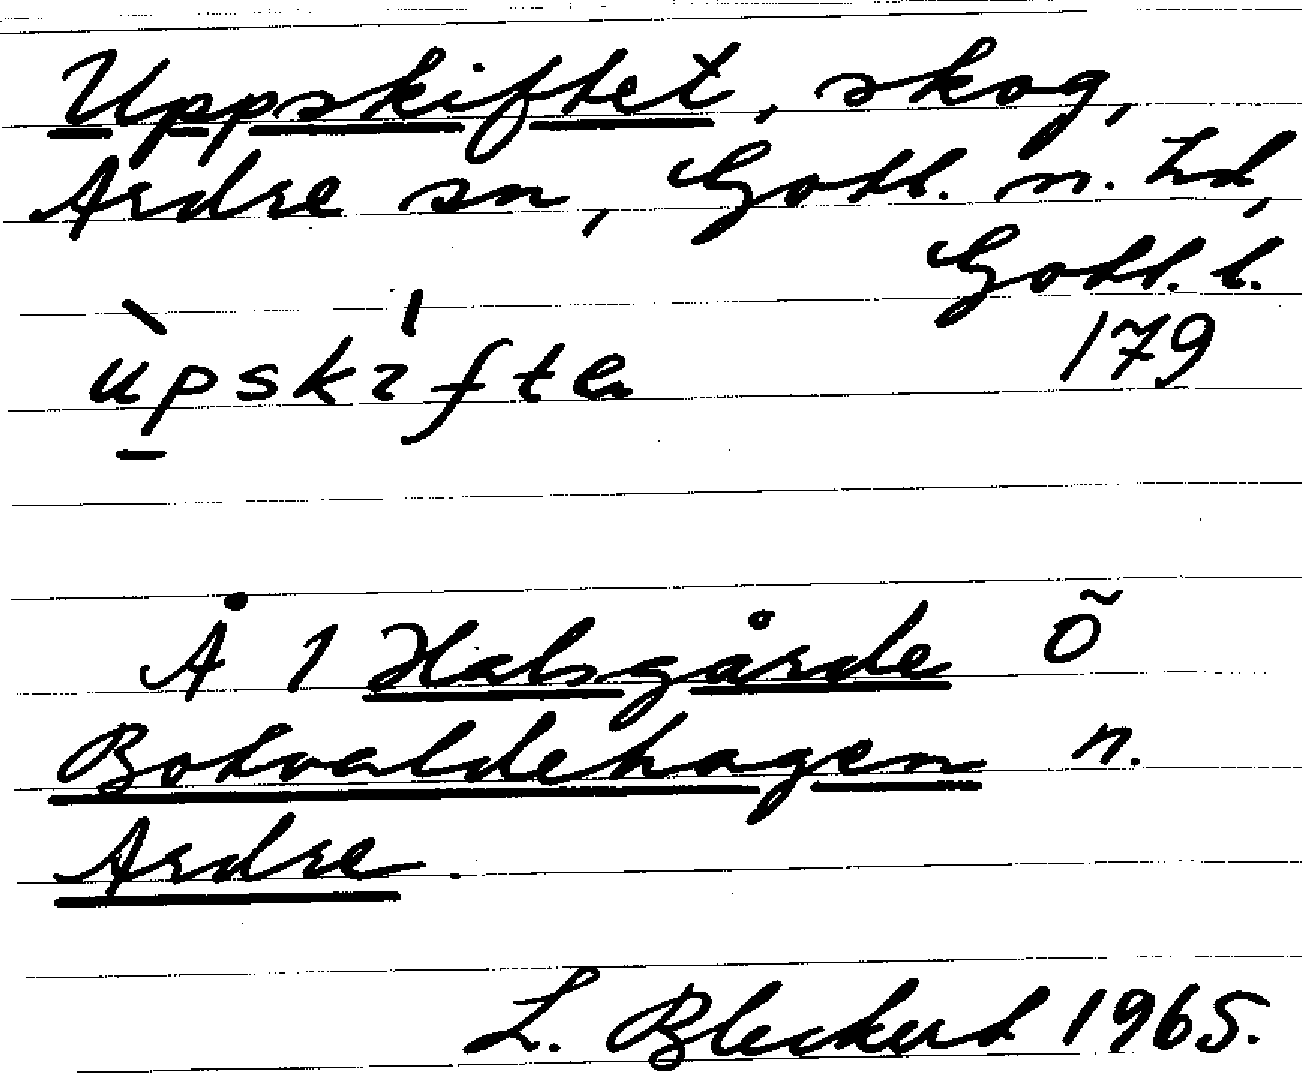 Uppskiftet, skog,
Ardre sn, Gotl. n. hd,
Gotl. l.
ùpski̍fte 179
Å 1 Halsgårde Õ
Botvaldehagen n.
Ardre.
L. Bleckert 1965.